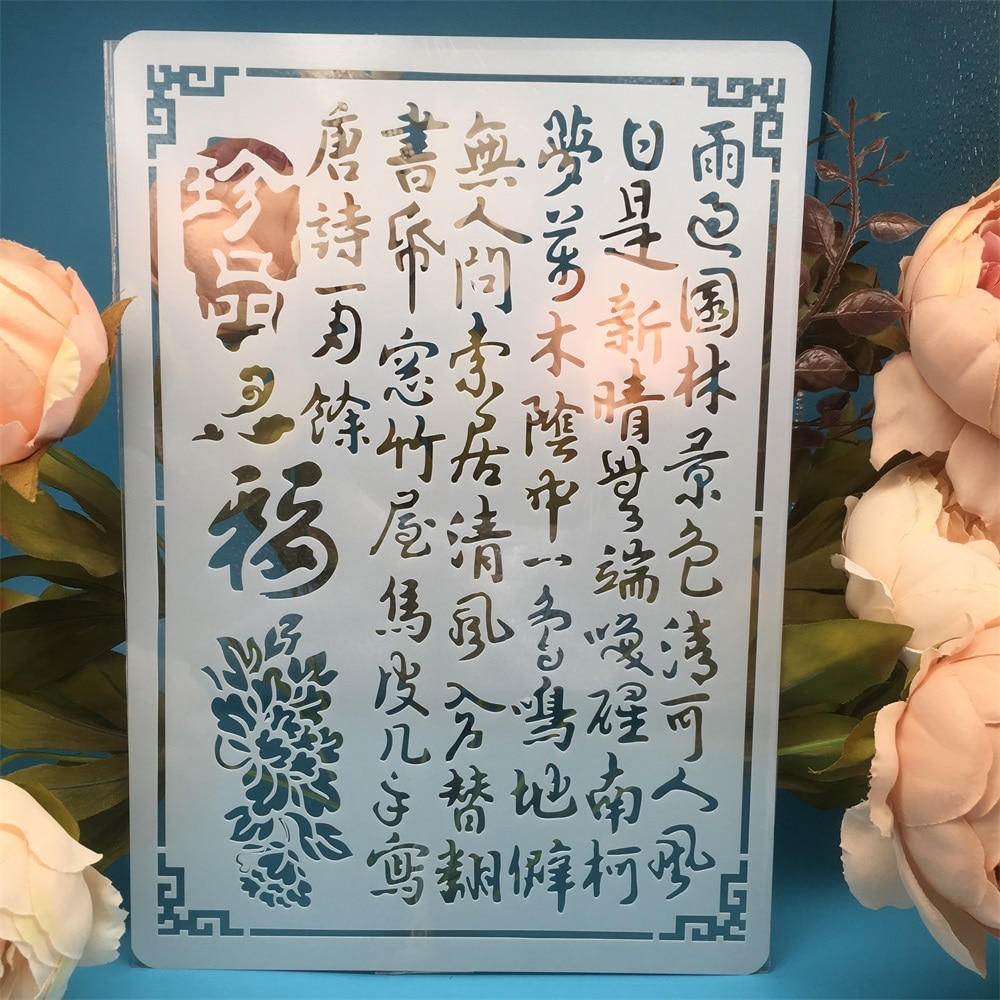 雨過園林景色清可人風
日是新晴無端喚醒南柯
夢萬木陰中一鳥鳴地僻
無人問索居清風入户替翻
書紙窓竹屋烏皮几手寫
唐詩一万餘
珍品
福